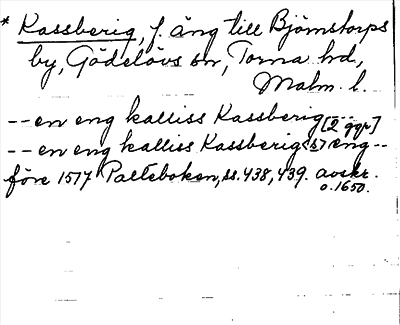 * Kassberig, f. äng till Björnstorps
by, Gödelövs sn, Torna hd,
Malm. l.
-- en eng kalliss Kassberig [2 ggr]
-- en eng kalliss Kassberig(s) eng --
före 1577 Palteboken, ss. 438, 439. avskr.
o. 1650.